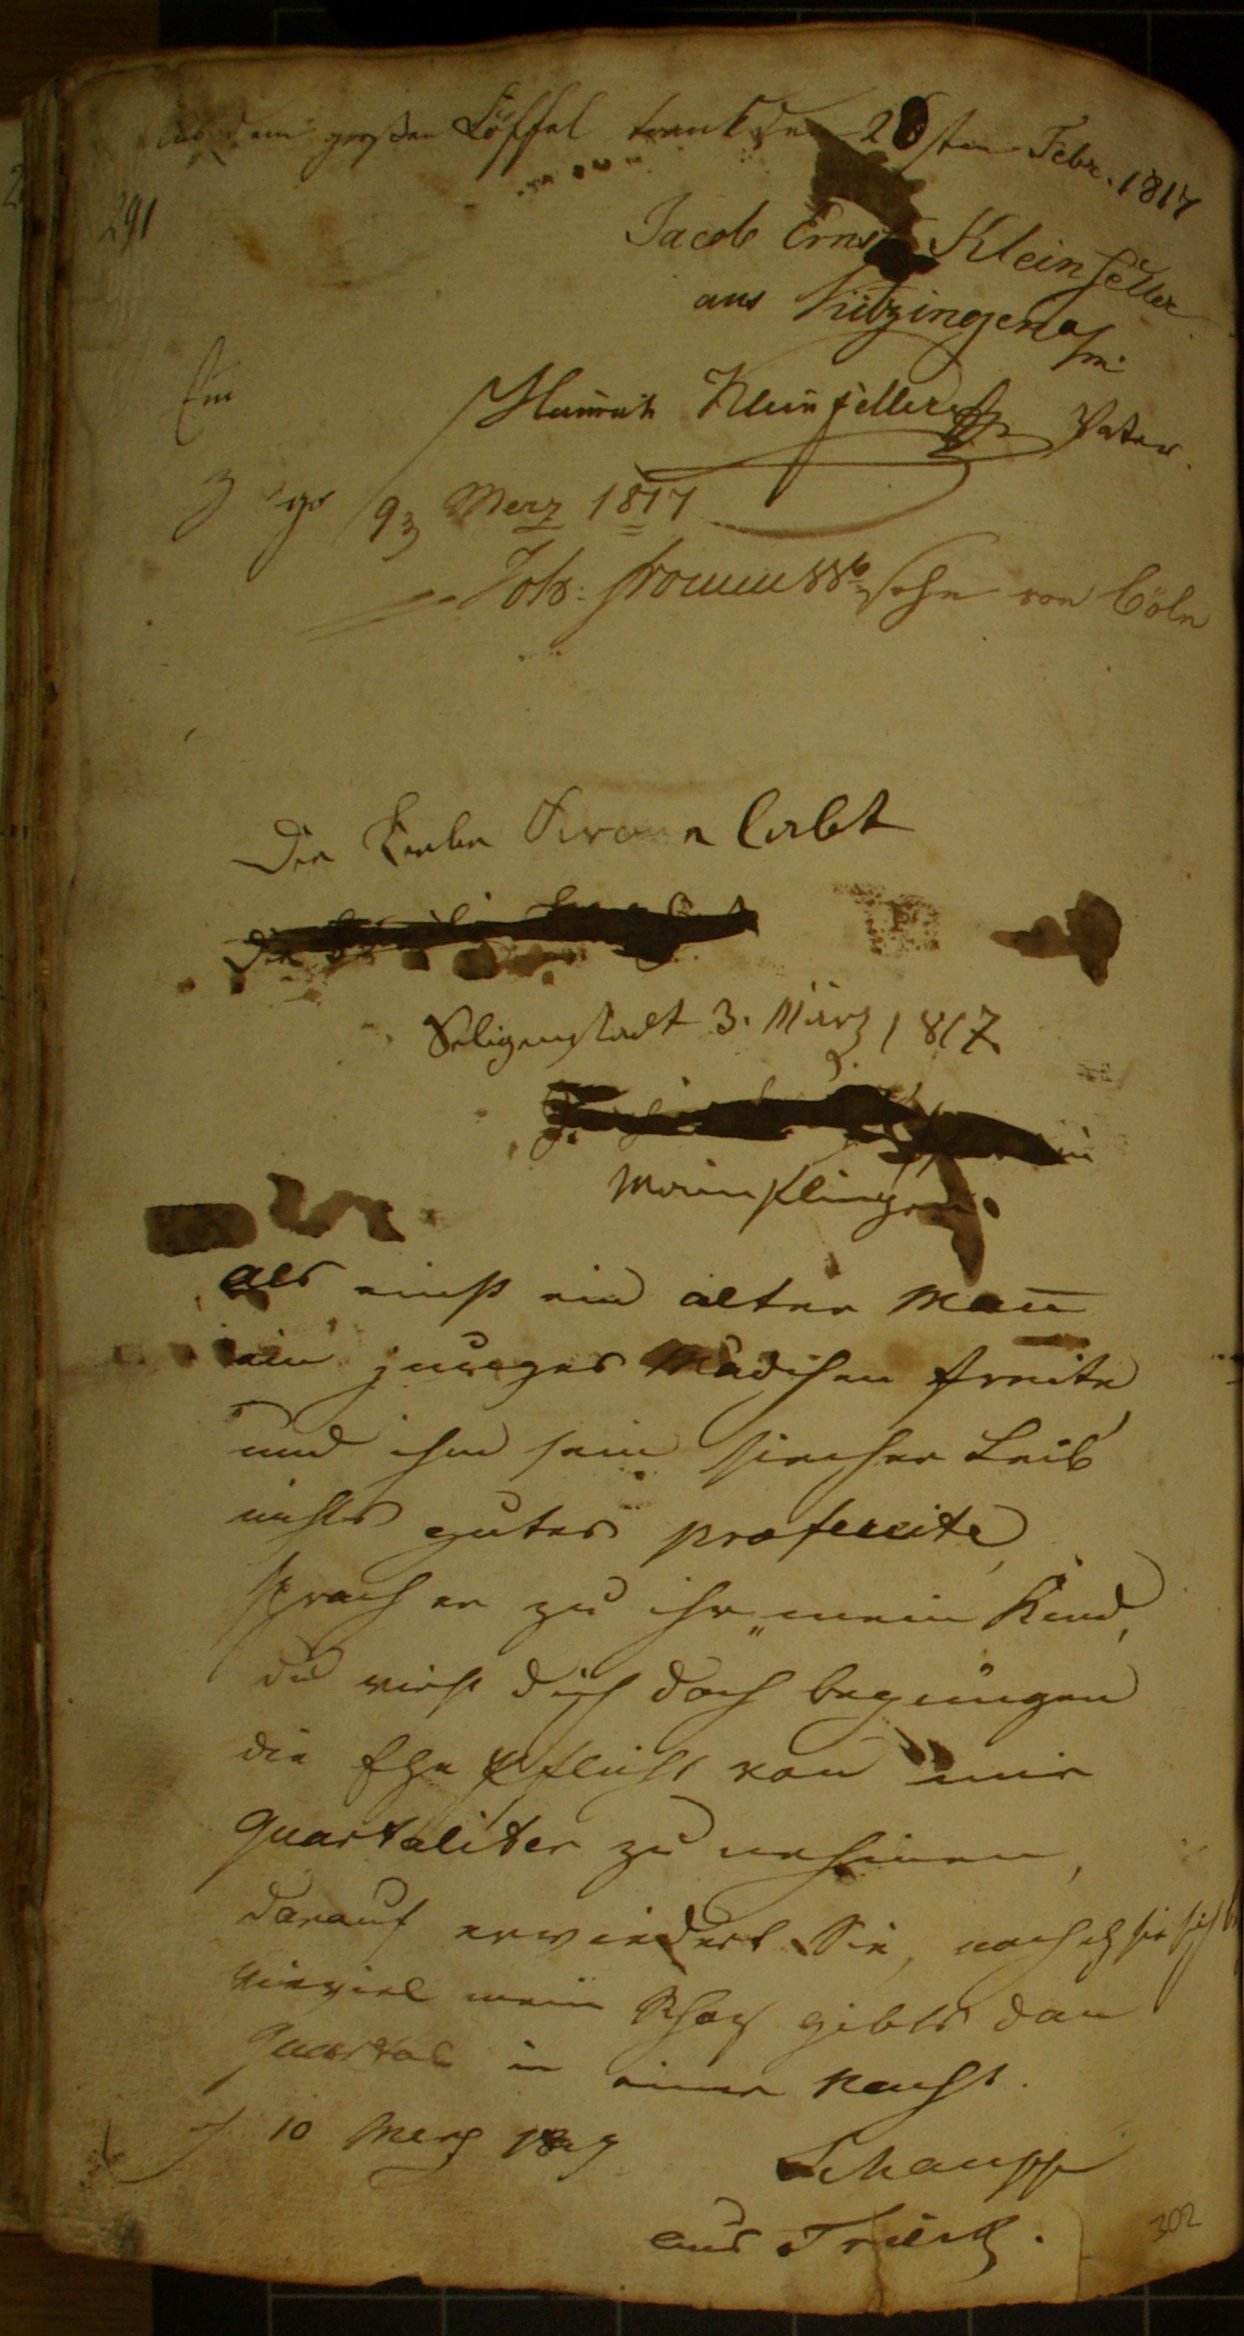 Aus dem großen Löffel trank den 26sten Febr. 1817
291
Jacob Ernst Kleinfeller
aus Kitzingen a/m.
Ein
Heinrich Kleinfeller Vater.
9 Merz 1817
Joh: sohn von Cöln
Der liebe lebt
Die
Seligenstadt 3. März 1817
Mainflingen
Als einst ein alter Mañ
ein junges Mädchen freite
und ihm sein siecher Leib
nichts gutes profeceite,
sprach er zu ihr „mein Kind,
du wirst dich doch begnügen
die Ehe Pflicht von mir
quartaliter zu nehmen,
darauf erwiedert Sie, nach
wieviel mein Schatz gibts dan
Quartal in einer Nacht.
10 Merz
aus
302